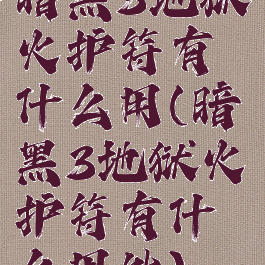 暗黑3地狱
火护符有
什么用(暗
黑3地狱火
护符有什
么用地)